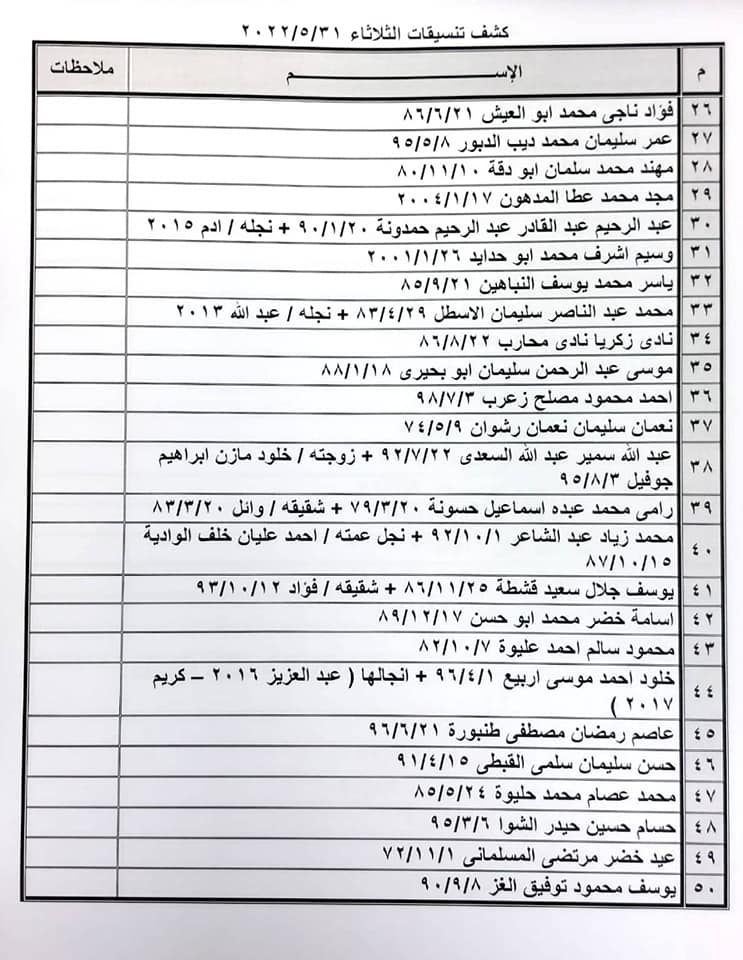 كشف تنسيقات الثلاثاء ٢٠٢٢/٥/٣١
م الإســـــــــــم ملاحظات
٢٦ فؤاد ناجى محمد ابو العيش ٨٦/٦/٢١
٢٧ عمر سليمان محمد ديب الدبور ٩٥/٥/٨
٢٨ مهند محمد سلمان ابو دقة ٨٠/١١/١٠
٢٩ مجد محمد عطا المدهون ٢٠٠٤/١/١٧
٣٠ عبد الرحيم عبد القادر عبد الرحيم حمدونة ٩٠/١/٢٠ + نجله / ادم ٢٠١٥
٣١ وسيم اشرف محمد ابو حدايد ٢٠٠١/١/٢٦
٣٢ ياسر محمد يوسف النباهين ٨٥/٩/٢١
٣٣ محمد عبد الناصر سليمان الاسطل ٨٣/٤/٢٩ + نجله / عبد الله ٢٠١٣
٣٤ نادى زكريا نادى محارب ٨٦/٨/٢٢
٣٥ موسى عبد الرحمن سليمان ابو بحيرى ٨٨/١/١٨
٣٦ احمد محمود مصلح زعرب ٩٨/٧/٣
٣٧ نعمان سليمان نعمان رشوان ٧٤/٥/٩
٣٨ عبد الله سمير عبد الله السعدى ٩٢/٧/٢٢ + زوجته / خلود مازن ابراهيم
جوفيل ٩٥/٨/٣
٣٩ رامى محمد عبده اسماعيل حسونة ٧٩/٣/٢٠ + شقيقه / وائل ٨٣/٣/٢٠
٤٠ محمد زياد عبد الشاعر ٩٢/١٠/١ + نجل عمته / احمد عليان خلف الوادية
٨٧/١٠/١٥
٤١ يوسف جلال سعيد قشطة ٨٦/١١/٢٥ + شقيقه / فؤاد ٩٣/١٠/١٢
٤٢ اسامة خضر محمد ابو حسن ٨٩/١٢/١٧
٤٣ محمود سالم احمد عليوة ٨٢/١٠/٧
٤٤ خلود احمد موسى اربيع ٩٦/٤/١ + انجالها ( عبد العزيز ٢٠١٦ – كريم
٢٠١٧ )
٤٥ عاصم رمضان مصطفى طنبورة ٩٦/٦/٢١
٤٦ حسن سليمان سلمى القبطى ٩١/٤/١٥
٤٧ محمد عصام محمد حليوة ٨٥/٥/٢٤
٤٨ حسام حسين حيدر الشوا ٩٥/٣/٦
٤٩ عيد خضر مرتضى المسلمانى ٧٢/١١/١
٥٠ يوسف محمود توفيق الغز ٩٠/٩/٨